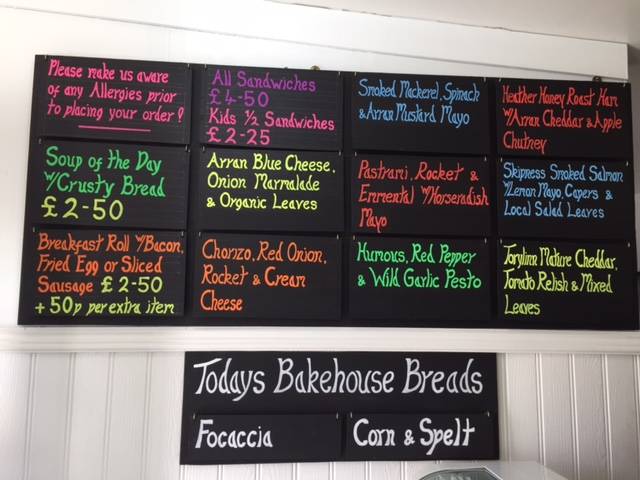 Please make us aware
of any Allergies prior
to placing your order?
All Sandwiches
£4-50
Kids ½ Sandwiches
£2-25
Smoked Mackerel, Spinach
& Arran Mustard Mayo
Heather Honey Roast Ham
W/Arran Cheddar & Apple
Chutney
Soup of the Day
W/Crusty Bread
£2-50
Arran Blue Cheese,
Onion Marmalade
& Organic Leaves
Pastrami, Rocket &
Emmental W/Horseradish
Mayo
Skipness Smoked Salmon
W/Lemon Mayo, Capers &
Local Salad Leaves
Breakfast Roll W/Bacon,
Fried Egg or Sliced
Sausage £2-50
+50p per extra item
Chorizo, Red Onion,
Rocket & Cream
Cheese
Humous, Red Pepper
& Wild Garlic Pesto
Torylinn Mature Cheddar,
Tomato Relish & Mixed
Leaves
Todays Bakehouse Breads
Focaccia
Corn & Spelt